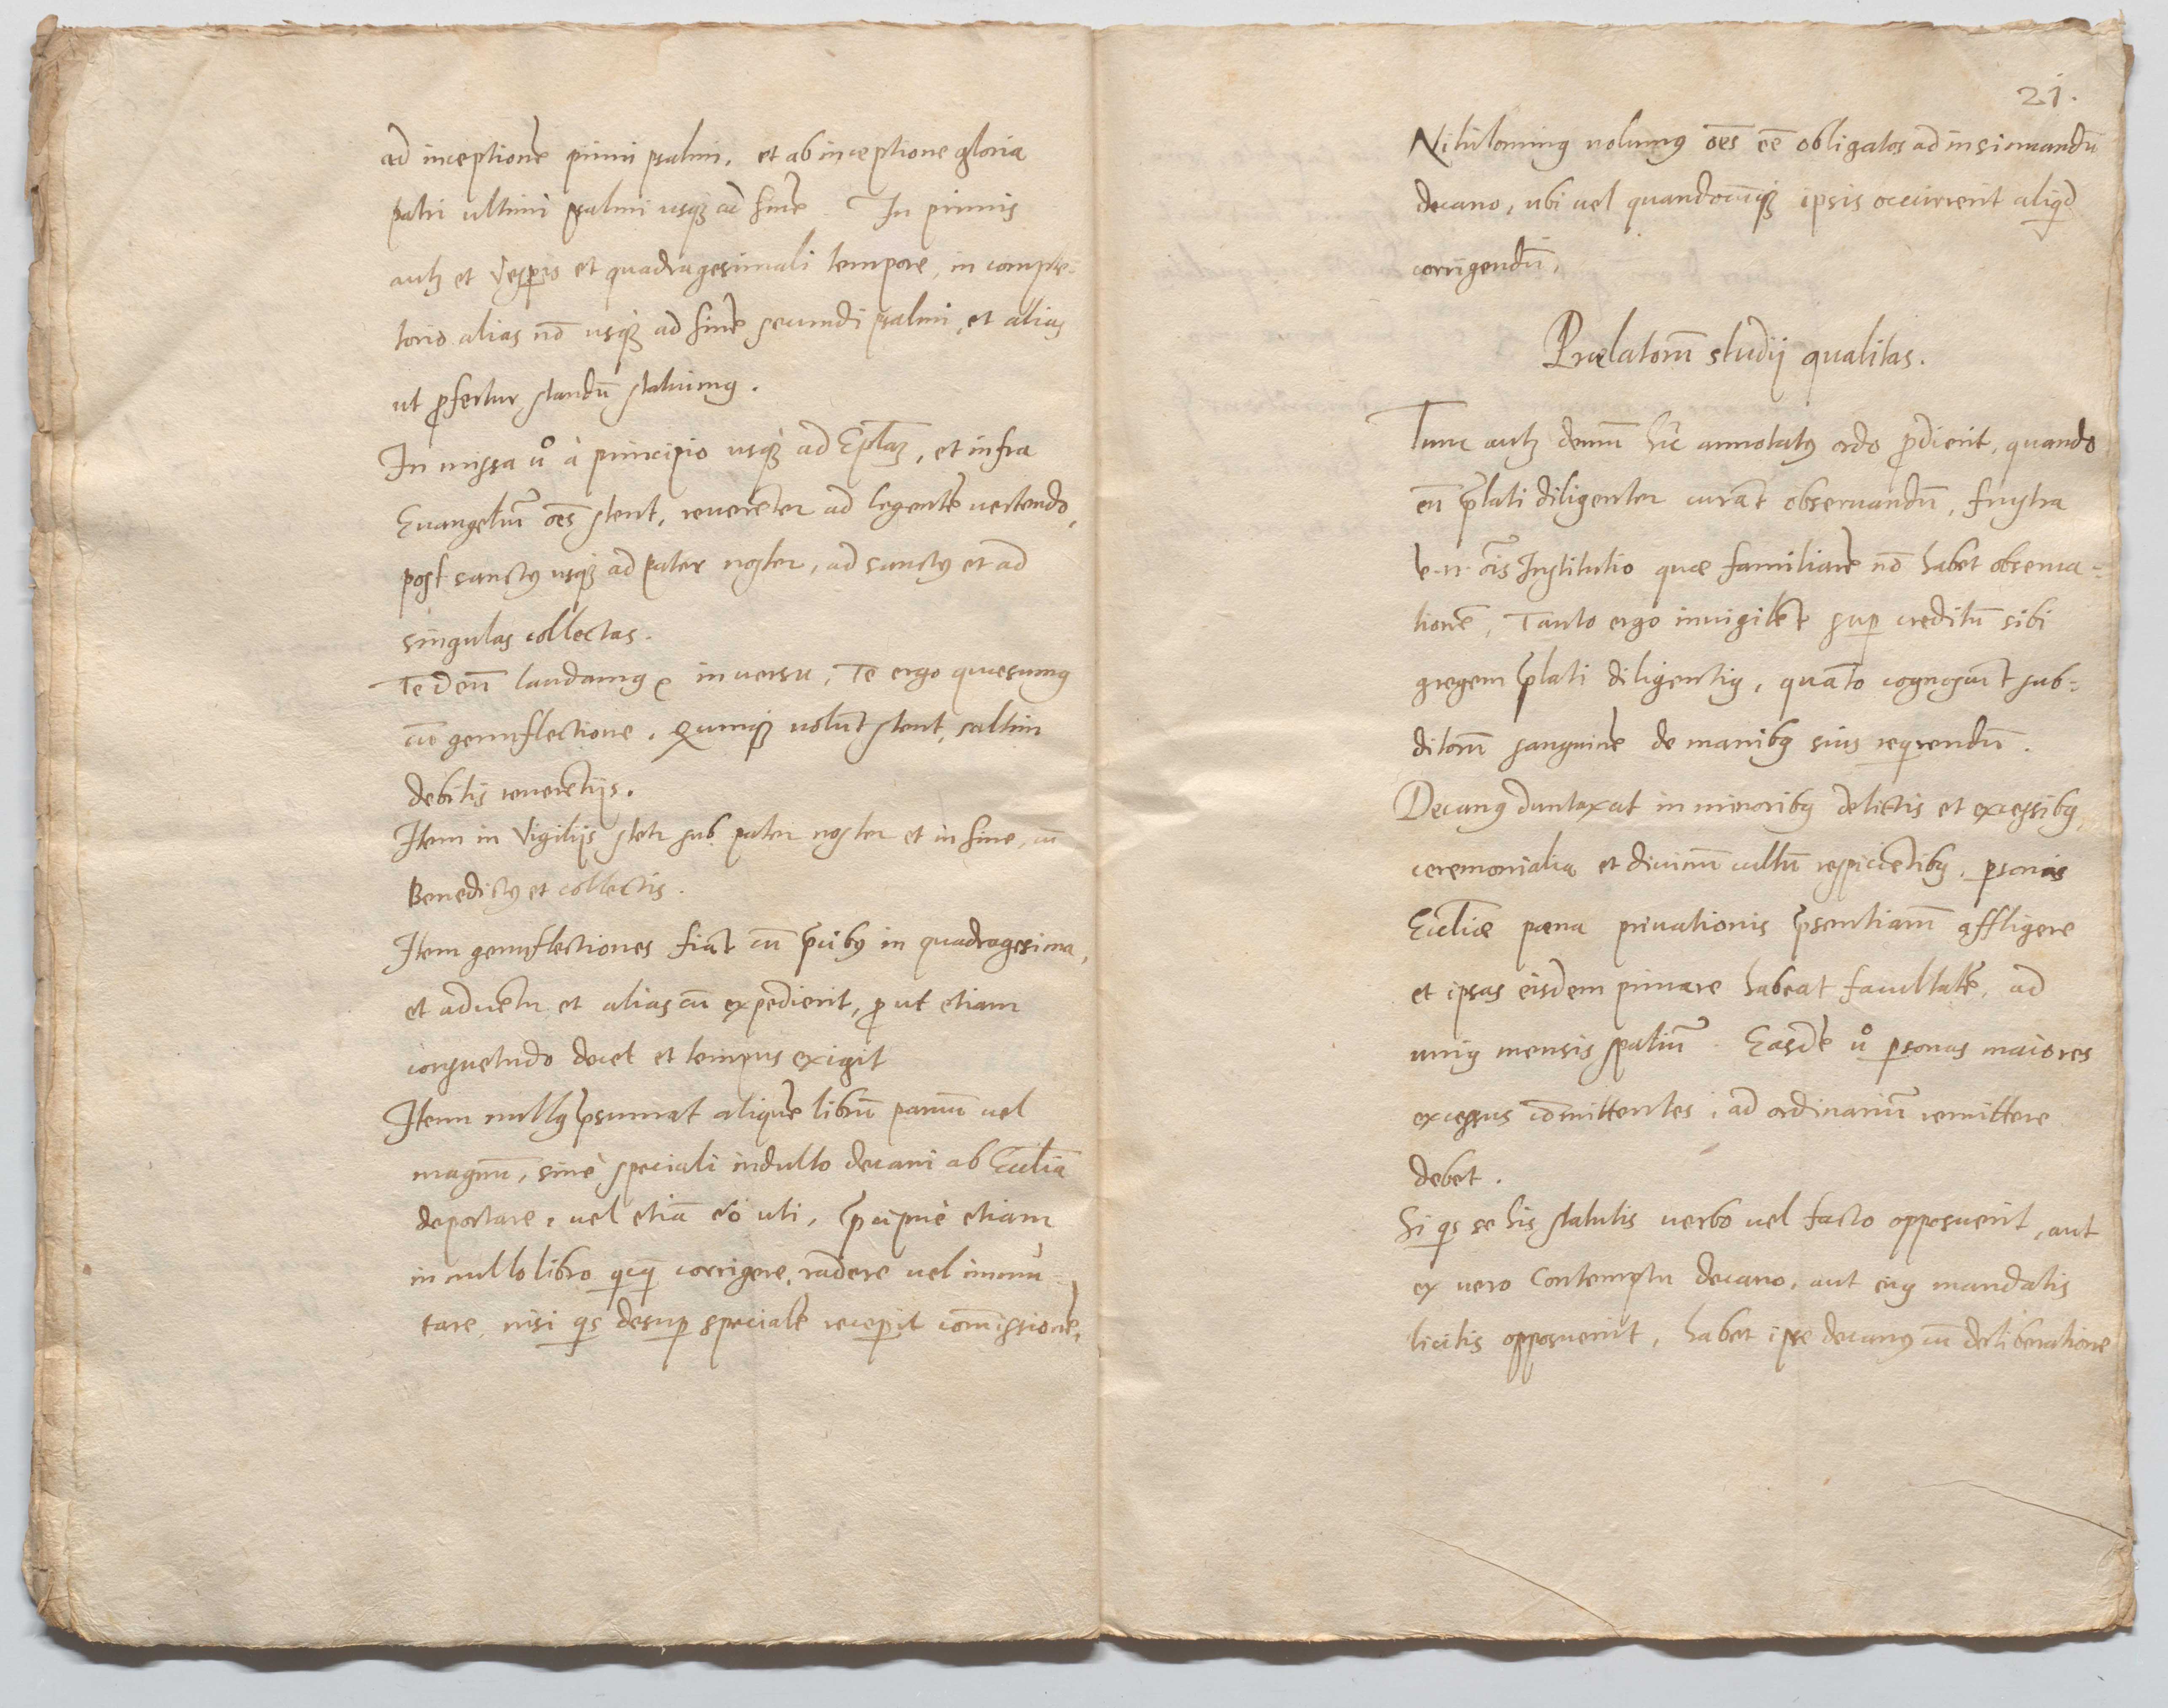 ad inceptionē primi psalmi, et ab inceptione gloria
patri ultimi psalmi usq̃ ad finē In primis
autẽ et Vesperis et quadragesimali tempore, in comple-
torio alias nō usq̃ ad finē secundi psalmi, et alias
ut p̄fertur standū statuimꝯ.
In missa uͦ à principio usq̃ ad Ep̄laʒ, et infra
Euangeliū oēs stent, reuerēter ad legentē uertendo,
post sanctꝯ usq̃ ad pater noster, ad sanctꝯ et ad
singulas collectas.
Te Deū laudamꝯ inuersu, Te ergo quęsumꝯ
cū genuflectione, qcumq̃ uolūt stent, saltim
debitis reuerētijs.
Item in Vigilijs stetr sub pater noster et in fine, cū
Benedictꝯ et collectis.
Item genuflectiones fiāt cū p̄cibꝯ in quadragesima,
et aduētu et alias cū expedierit, ꝓut etiam
consuetudo docet et tempus exigit
Item nullꝯ p̄sumat aliquē librū paruū uel
magnū, sinè speciali indulto decani ab Ecclīa
deportare, uel etiā eo uti, p̄cipuè etiam
in nullo libro qicq̃ corrigere, radere uel immu-
tare, nisi qis desup̱ specialē receperit com̄issionē,
21.
Nihilominꝯ uolumꝯ oēs eē obligatos ad insinuandū
decano, ubi uel quandocūq̃ ipsis occurrerit aliqid
corrigendū,
Prælatorū studij qualitas.
Tunc autẽ demū hic annotatꝯ ordo ꝓdierit, quando
eū p̄lati diligenter curāt obseruandū, frustra
e.n. oīs Institutio quæ familiarē nō habet obserua-
tionē, Tanto ergo inuigilēt sup̱ creditū sibi
gregem p̄lati diligentiꝯ, quāto cognoscūt sub-
ditorū sanguinē de manibꝯ suis reqirendū.
Decanꝯ duntaxat in minoribꝯ delictis et excessibꝯ,
ceremonialia et diuinū cultū respiciētibꝯ, p̱sonas
Ecclīæ pœna priuationis p̄sentiarū affligere
et ipsas eisdem priuare habeat facultatē, ad
uniꝯ mensis spatiū. Easdē uͦ p̱sonas maiores
excessus cōmittentes, ad ordinariū remittere
debet.
Si qis se his statutis uerbo uel facto opposuerit, aut
ex uero Contemptu decano, aut eiꝯ mandatis
licitis opposuerit, habet ipse decanꝯ cū deliberatione